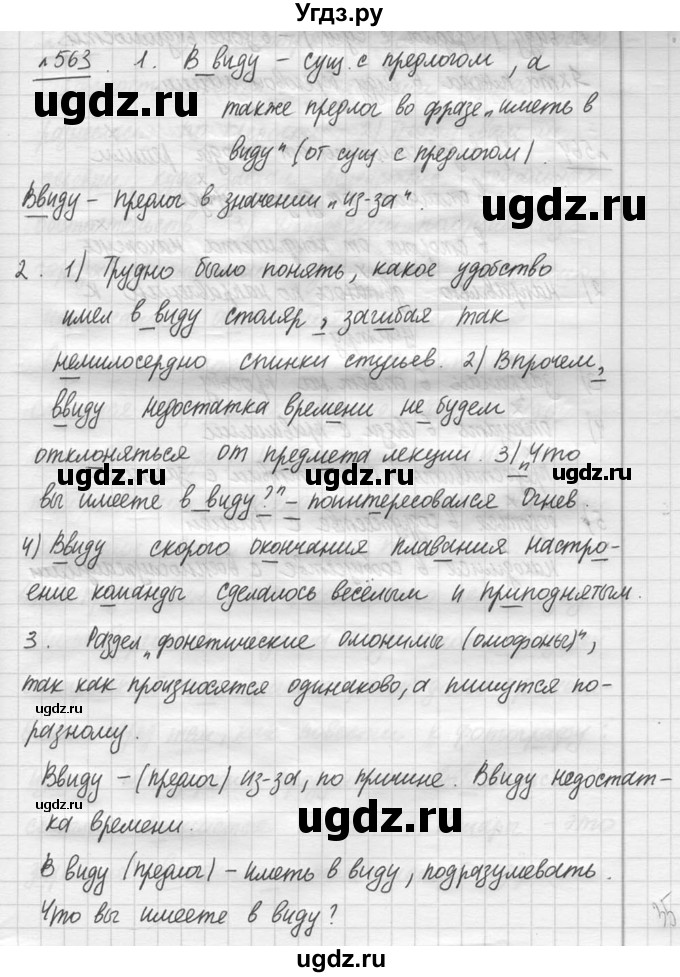 Угдз.ру
№563. 1. В виду – сущ. с предлогом, а
также предлог во фразе „иметь в
виду" (от сущ с предлогом).
Ввиду – предлог в значении „из-за".
2. 1) Трудно было понять, какое удобство
имел в виду столяр, загибая так
немилосердно спинки стульев. 2) Впрочем,
ввиду недостатка времени не будем
отклоняться от предмета лекции. 3) „Что
вы имеете в виду?" – поинтересовался Огнев.
4) Ввиду скорого окончания плавания настро-
ение команды сделалось весёлым и приподнятым.
3. Раздел „фонетические омонимы (омофоны)",
так как произносятся одинаково, а пишутся по-
разному.
Ввиду – (предлог) из-за, по причине. Ввиду недостат-
ка времени.
В виду (предлог) – иметь в виду, подразумевать.
Что вы имеете в виду?
35
ugdz.ru
ugdz.ru
ugdz.ru
ugdz.ru
ugdz.ru
ugdz.ru
ugdz.ru
ugdz.ru
ugdz.ru
ugdz.ru
ugdz.ru
ugdz.ru
ugdz.ru